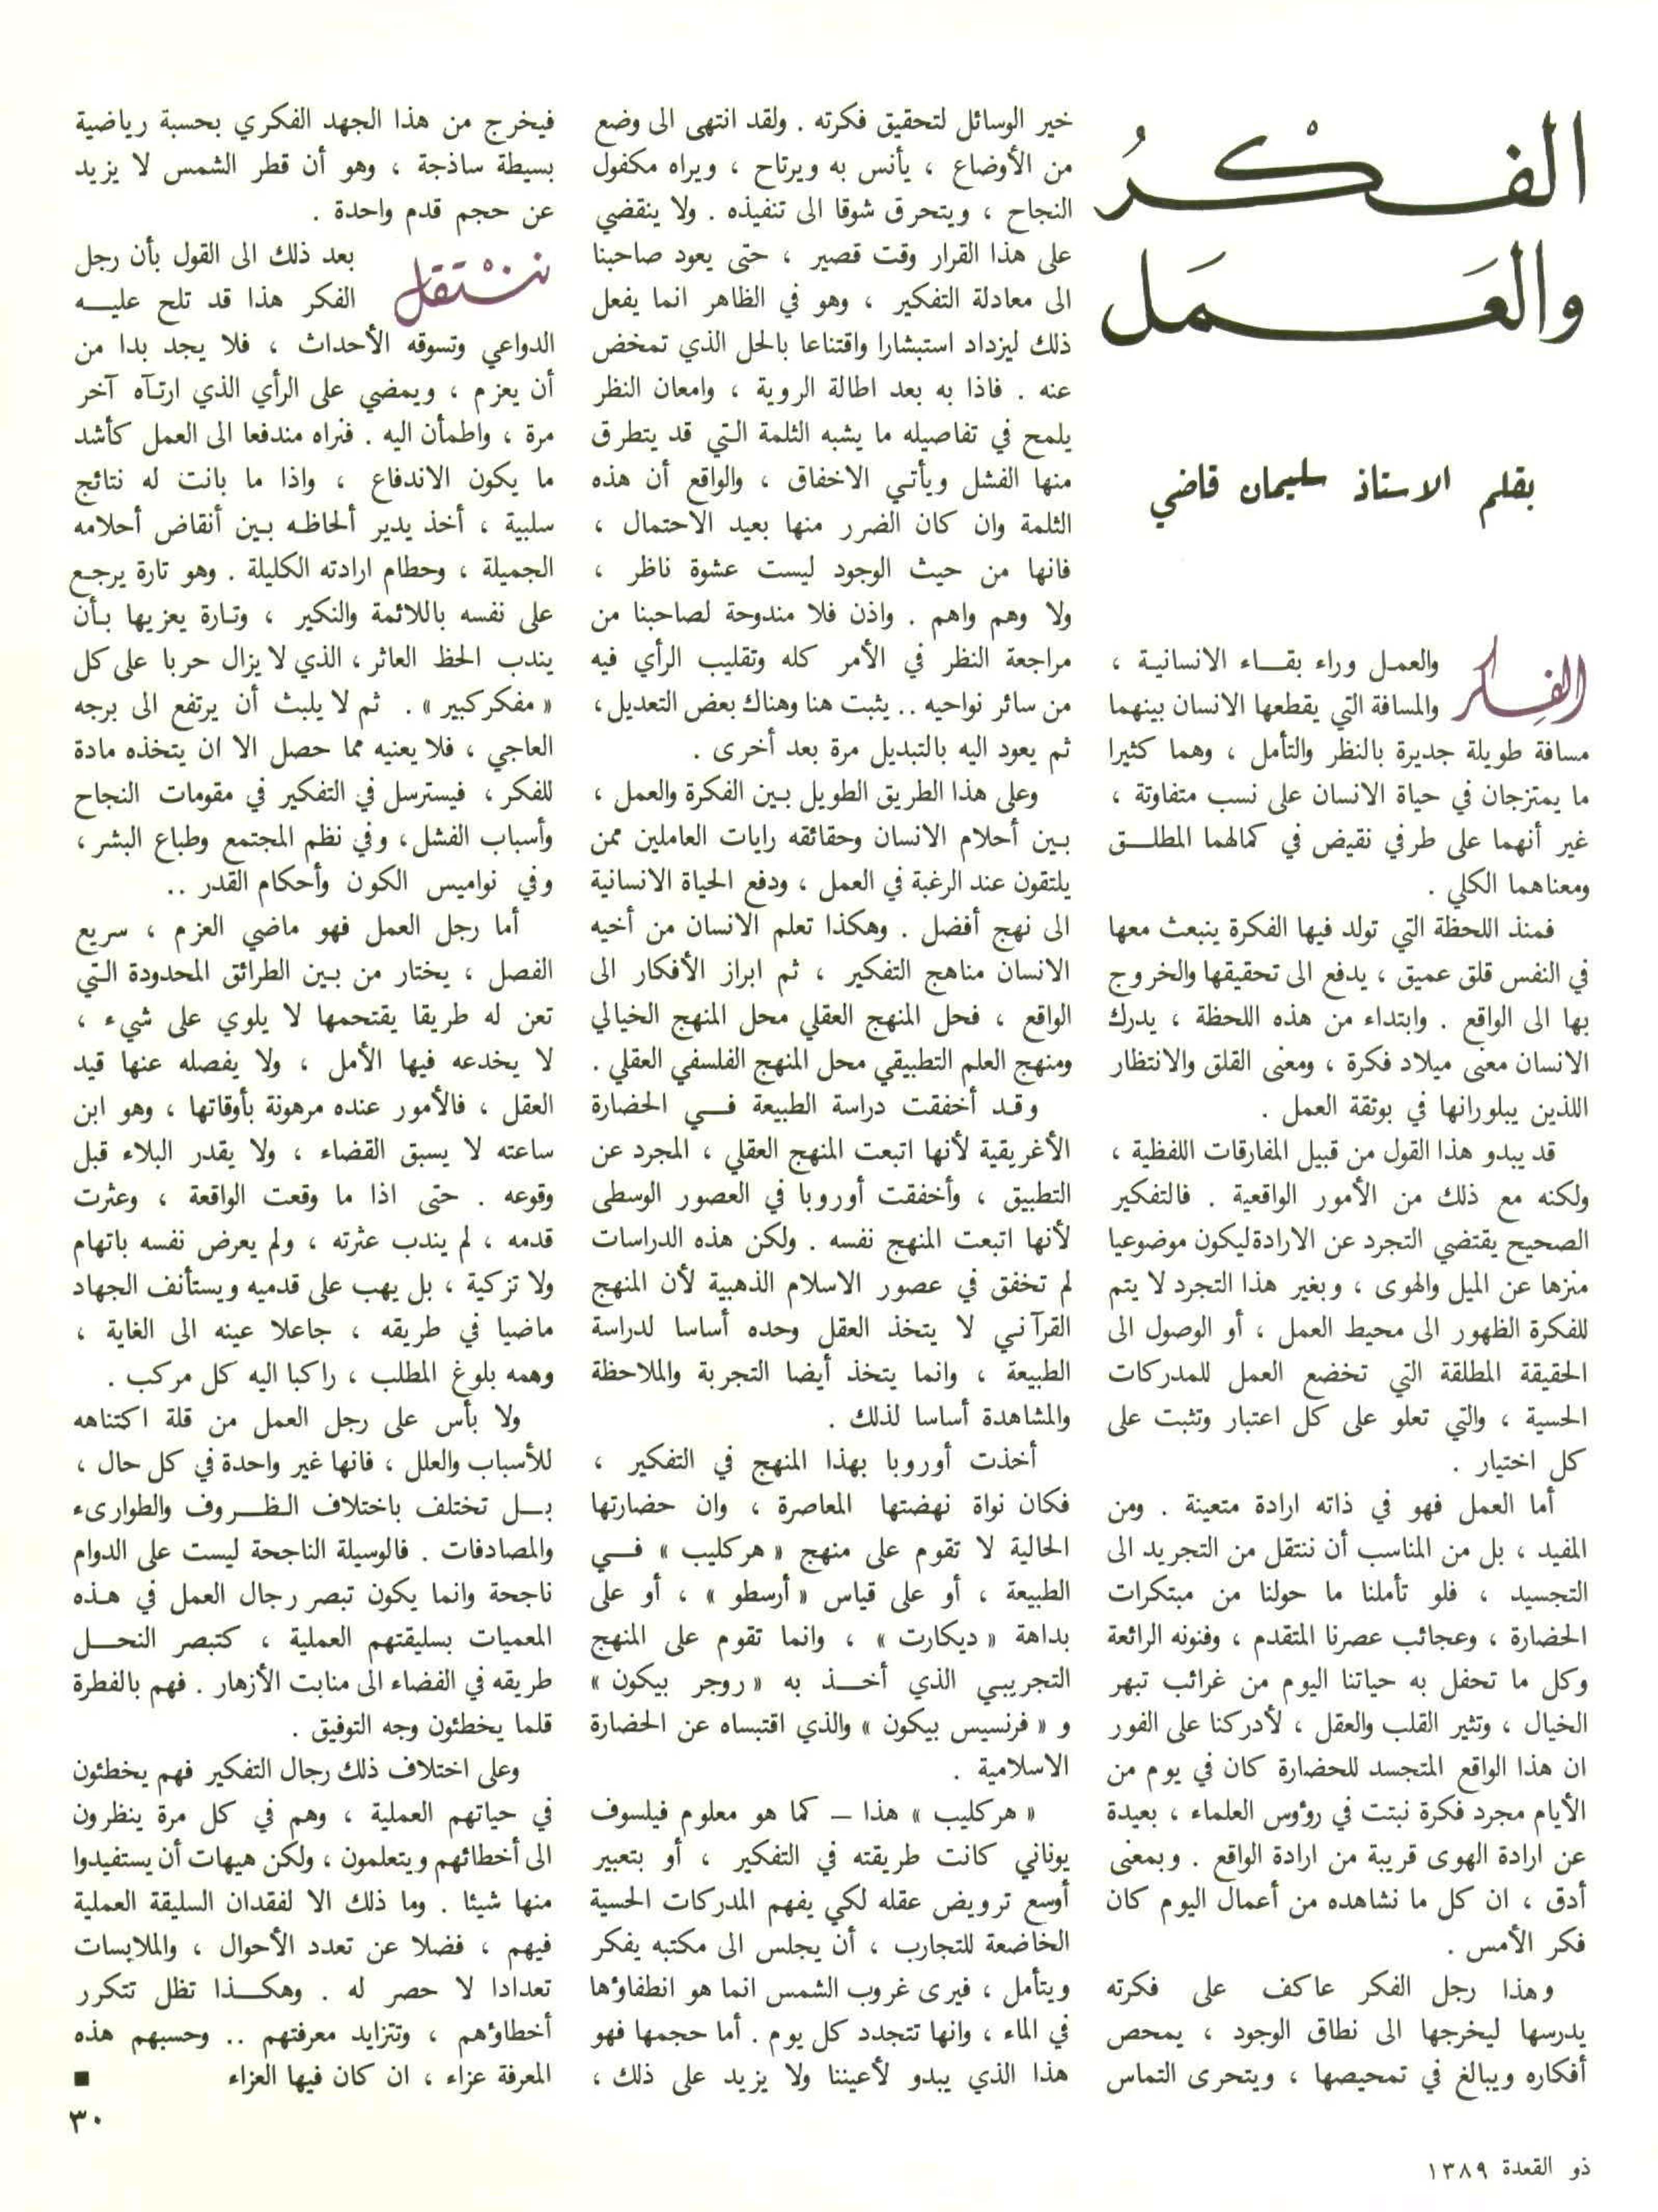 الفكْرُ
والعَمَل
بقلم الاستاذ سليمان قاضي
الفِكر والعمل وراء بقاء الانسانية ،
والمسافة التي يقطعها الانسان بينهما
مسافة طويلة جديرة بالنظر والتأمل ، وهما كثيرا
ما يمتزجان في حياة الانسان على نسب متفاوتة ،
غير أنهما على طرفي نقيض في كمالهما المطلق
ومعناهما الكلي .
فمنذ اللحظة التي تولد فيها الفكرة ينبعث معها
في النفس قلق عميق ، يدفع الى تحقيقها والخروج
بها الى الواقع . وابتداء من هذه اللحظة ، يدرك
الانسان معنى ميلاد فكرة ، ومعنى القلق والانتظار
اللذين يبلورانها في بوتقة العمل .
قد يبدو هذا القول من قبيل المفارقات اللفظية ،
ولكنه مع ذلك من الأمور الواقعية . فالتفكير
الصحيح يقتضي التجرد عن الارادة ليكون موضوعيا
منزها عن الميل والهوى ، وبغير هذا التجرد لا يتم
للفكرة الظهور الى محيط العمل ، أو الوصول الى
الحقيقة المطلقة التي تخضع العمل للمدركات
الحسية ، والتي تعلو على كل اعتبار وتثبت على
كل اختيار .
أما العمل فهو في ذاته ارادة متعينة . ومن
المفيد ، بل من المناسب أن ننتقل من التجريد الى
التجسيد ، فلو تأملنا ما حولنا من مبتكرات
الحضارة ، وعجائب عصرنا المتقدم ، وفنونه الرائعة
وكل ما تحفل به حياتنا اليوم من غرائب تبهر
الخيال ، وتثير القلب والعقل ، لأدركنا على الفور
ان هذا الواقع المتجسد للحضارة كان في يوم من
الأيام مجرد فكرة نبتت في رؤوس العلماء ، بعيدة
عن ارادة الهوى قريبة من ارادة الواقع . وبمعنى
أدق ، ان كل ما نشاهده من أعمال اليوم كان
فكر الأمس .
وهذا رجل الفكر عاكف على فكرته
يدرسها ليخرجها الى نطاق الوجود ، يمحص
أفكاره ويبالغ في تمحيصها ، ويتحرى التماس
خير الوسائل لتحقيق فكرته . ولقد انتهى الى وضع
من الأوضاع ، يأنس به ويرتاح ، ويراه مكفول
النجاح ، ويتحرق شوقا الى تنفيذه . ولا ينقضي
على هذا القرار وقت قصير ، حتى يعود صاحبنا
الى معادلة التفكير ، وهو في الظاهر انما يفعل
ذلك ليزداد استبشارا واقتناعا بالحل الذي تمخض
عنه . فاذا به بعد اطالة الروية ، وامعان النظر
يلمح في تفاصيله ما يشبه الثلمة التي قد يتطرق
منها الفشل ويأتي الاخفاق ، والواقع أن هذه
الثلمة وان كان الضرر منها بعيد الاحتمال ،
فانها من حيث الوجود ليست عشوة ناظر ،
ولا وهم واهم . واذن فلا مندوحة لصاحبنا من
مراجعة النظر في الأمر كله وتقليب الرأي فيه
من سائر نواحيه .. يثبت هنا وهناك بعض التعديل،
ثم يعود اليه بالتبديل مرة بعد أخرى .
وعلى هذا الطريق الطويل بين الفكرة والعمل ،
بين أحلام الانسان وحقائقه رايات العاملين ممن
يلتقون عند الرغبة في العمل ، ودفع الحياة الانسانية
الى نهج أفضل . وهكذا تعلم الانسان من أخيه
الانسان مناهج التفكير ، ثم ابراز الأفكار الى
الواقع ، فحل المنهج العقلي محل المنهج الخيالي
ومنهج العلم التطبيقي محل المنهج الفلسفي العقلي .
وقد أخفقت دراسة الطبيعة في الحضارة
الأغريقية لأنها اتبعت المنهج العقلي ، المجرد عن
التطبيق ، وأخفقت أوروبا في العصور الوسطى
لأنها اتبعت المنهج نفسه . ولكن هذه الدراسات
لم تخفق في عصور الاسلام الذهبية لأن المنهج
القرآني لا يتخذ العقل وحده أساسا لدراسة
الطبيعة ، وانما يتخذ أيضا التجربة والملاحظة
والمشاهدة أساسا لذلك .
أخذت أوروبا بهذا المنهج في التفكير ،
فكان نواة نهضتها المعاصرة ، وان حضارتها
الحالية لا تقوم على منهج « هركليب » في
الطبيعة ، أو على قياس « أرسطو » ، أو على
بداهة « ديكارت » ، وانما تقوم على المنهج
التجريبي الذي أخذ به « روجر بيكون »
و « فرنسيس بيكون » والذي اقتبساه عن الحضارة
الاسلامية .
« هركليب » هذا – كما هو معلوم فيلسوف
يوناني كانت طريقته في التفكير ، أو بتعبير
أوسع ترويض عقله لكي يفهم المدركات الحسية
الخاضعة للتجارب ، أن يجلس الى مكتبه يفكر
ويتأمل ، فيرى غروب الشمس انما هو انطفاؤها
في الماء ، وانها تتجدد كل يوم . أما حجمها فهو
هذا الذي يبدو لأعيننا ولا يزيد على ذلك ،
فيخرج من هذا الجهد الفكري بحسبة رياضية
بسيطة ساذجة ، وهو أن قطر الشمس لا يزيد
عن حجم قدم واحدة .
ننتقل بعد ذلك الى القول بأن رجل
الفكر هذا قد تلح عليه
الدواعي وتسوقه الأحداث ، فلا يجد بدا من
أن يعزم ، ويمضي على الرأي الذي ارتآه آخر
مرة ، واطمأن اليه . فنراه مندفعا الى العمل كأشد
ما يكون الاندفاع ، واذا ما بانت له نتائج
سلبية ، أخذ يدير ألحاظه بين أنقاض أحلامه
الجميلة ، وحطام ارادته الكليلة . وهو تارة يرجع
على نفسه باللائمة والنكير ، وتارة يعزيها بأن
يندب الحظ العاثر ، الذي لا يزال حربا على كل
« مفكر كبير » . ثم لا يلبث أن يرتفع الى برجه
العاجي ، فلا يعنيه مما حصل الا ان يتخذه مادة
للفكر ، فيسترسل في التفكير في مقومات النجاح
وأسباب الفشل ، وفي نظم المجتمع وطباع البشر ،
وفي نواميس الكون وأحكام القدر ..
أما رجل العمل فهو ماضي العزم ، سريع
الفصل ، يختار من بين الطرائق المحدودة التي
تعن له طريقا يقتحمها لا يلوي على شيء ،
لا يخدعه فيها الأمل ، ولا يفصله عنها قيد
العقل ، فالأمور عنده مرهونة بأوقاتها ، وهو ابن
ساعته لا يسبق القضاء ، ولا يقدر البلاء قبل
وقوعه . حتى اذا ما وقعت الواقعة ، وعثرت
قدمه ، لم يندب عثرته ، ولم يعرض نفسه باتهام
ولا تزكية ، بل يهب على قدميه ويستأنف الجهاد
ماضيا في طريقه ، جاعلا عينه الى الغاية ،
وهمه بلوغ المطلب ، راكبا اليه كل مركب .
ولا بأس على رجل العمل من قلة اكتناهه
للأسباب والعلل ، فانها غير واحدة في كل حال ،
بل تختلف باختلاف الظروف والطوارىء
والمصادفات . فالوسيلة الناجحة ليست على الدوام
ناجحة وانما يكون تبصر رجال العمل في هذه
المعميات بسليقتهم العملية ، كتبصر النحل
طريقه في الفضاء الى منابت الأزهار . فهم بالفطرة
قلما يخطئون وجه التوفيق .
وعلى اختلاف ذلك رجال التفكير فهم يخطئون
في حياتهم العملية ، وهم في كل مرة ينظرون
الى أخطائهم ويتعلمون ، ولكن هيهات أن يستفيدوا
منها شيئا . وما ذلك الا لفقدان السليقة العملية
فيهم ، فضلا عن تعدد الأحوال ، والملابسات
تعدادا لا حصر له . وهكذا تظل تتكرر
أخطاؤهم ، وتتزايد معرفتهم .. وحسبهم هذه
المعرفة عزاء ، ان كان فيها العزاء ■
٣٠
ذو القعدة ١٣٨٩